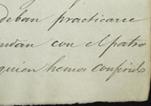 deban practicarse
untan con el patro
quien hemos conferido